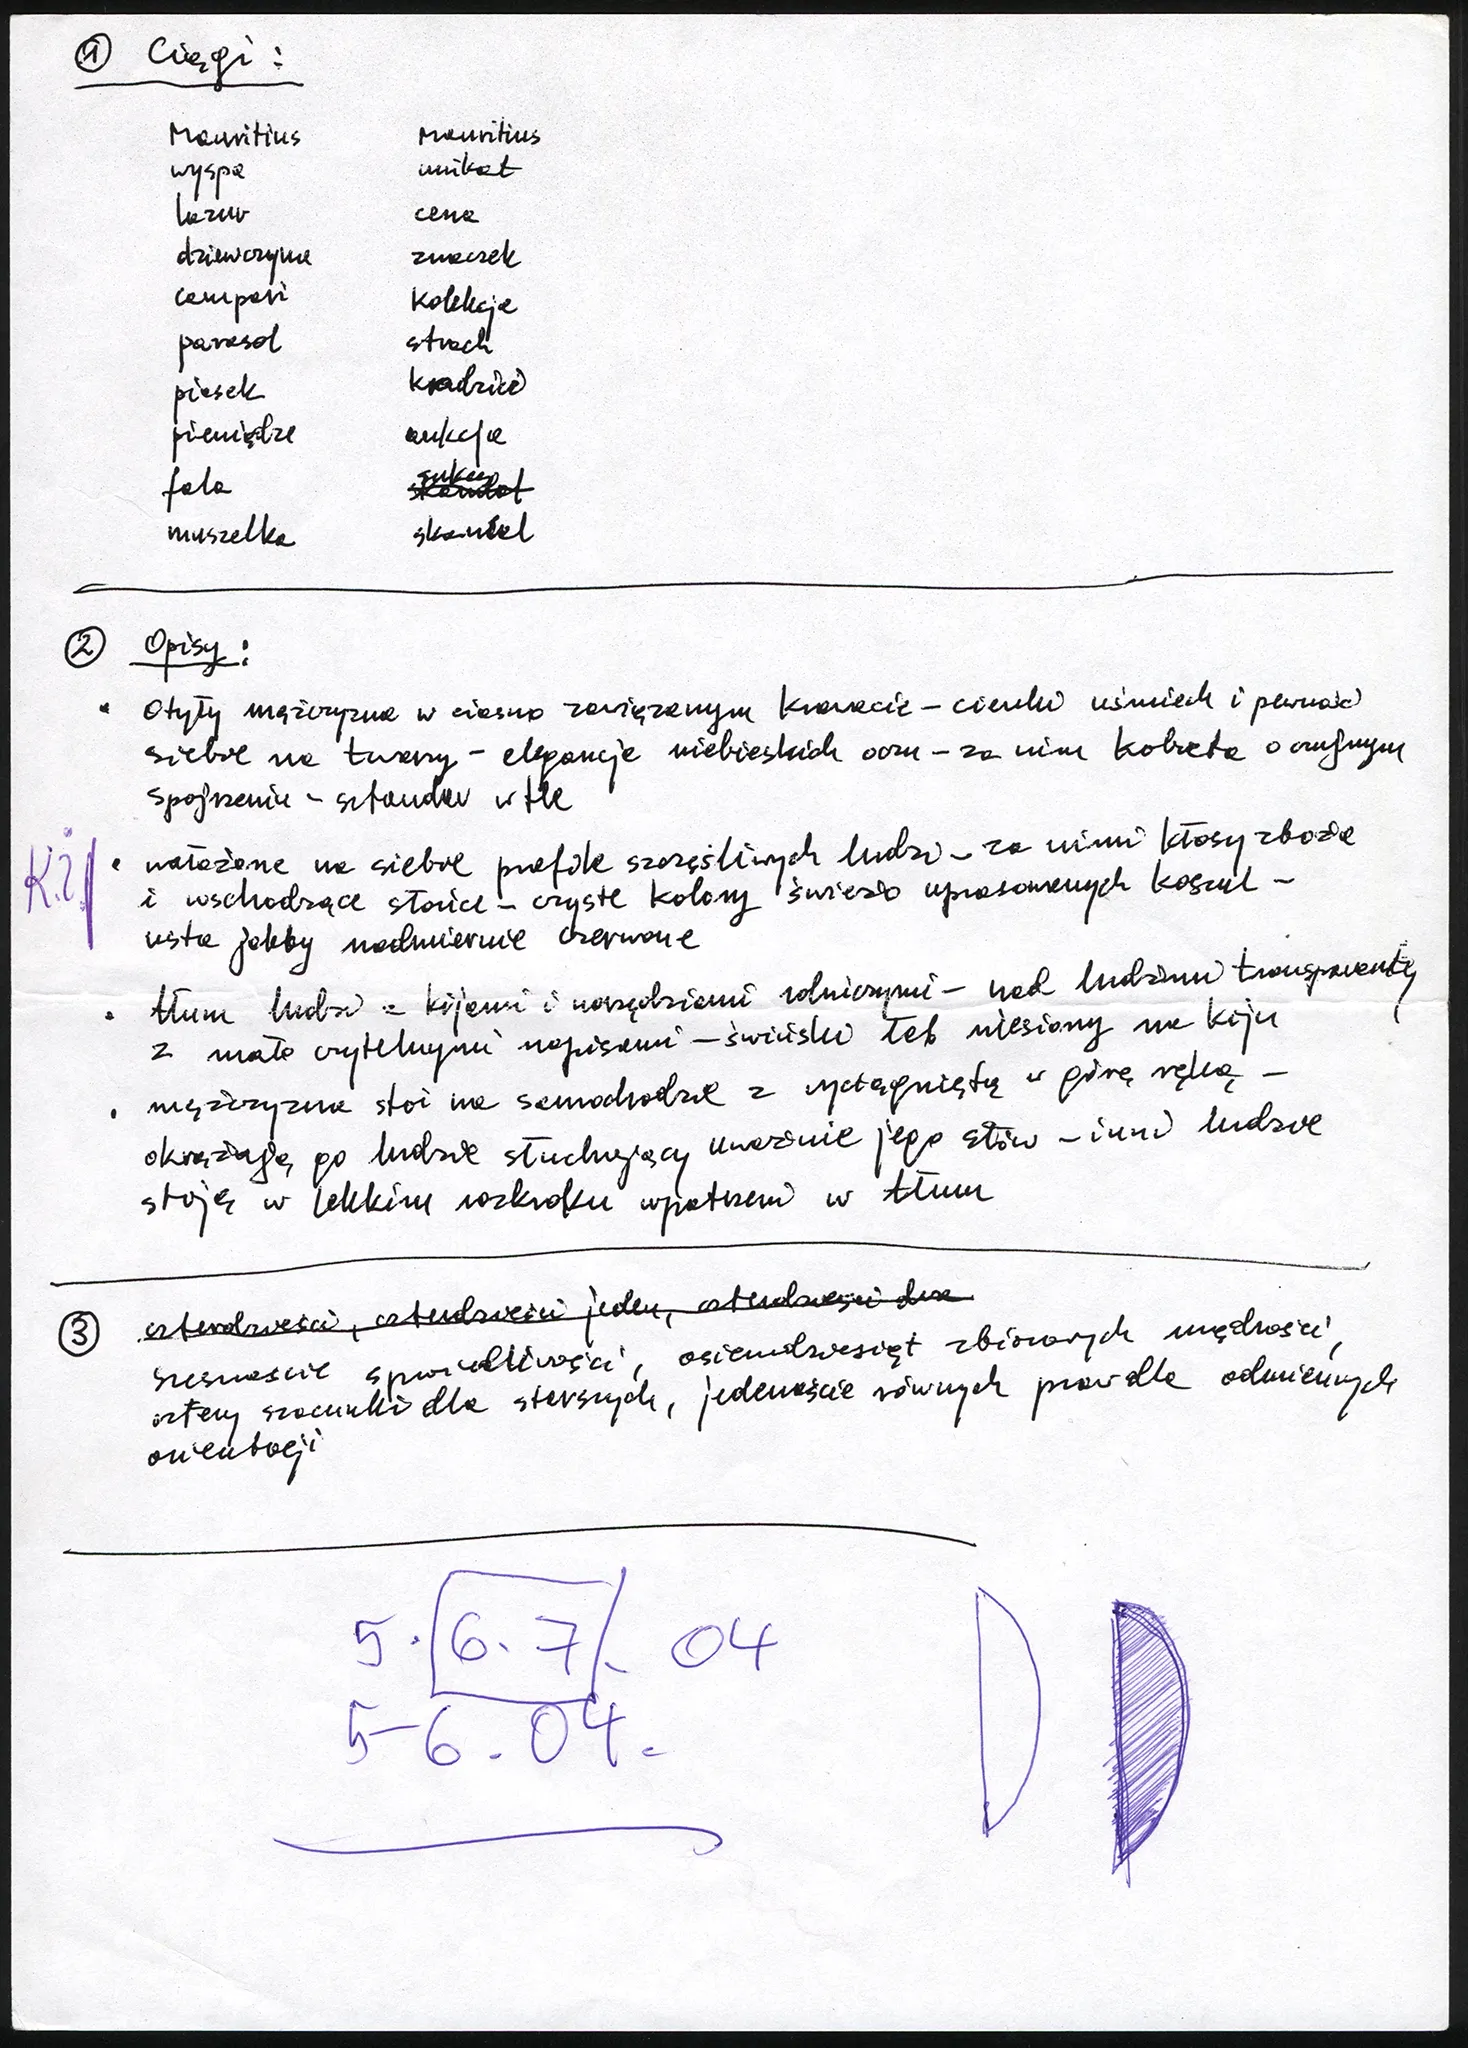 ① Ciągi:
Mauritius Mauritius
wyspa unikat
lazur cena
dziewczyna znaczek
campari kolekcja
parasol strach
piasek kradzież
pieniądze aukcja
fala
muszelka skandal
② Opisy:
• Otyły mężczyzna w ciasno zawiązanym krawacie – cienki uśmiech i pewność
siebie na twarzy – elegancja niebieskich oczu – za nim kobieta o czujnym
spojrzeniu – sztandar w tle
K.Ż.
• nałożone na siebie profile szczęśliwych ludzi – za nimi kłosy zboża
i wschodzące słońce – czyste kolory świeżo uprasowanych koszul –
usta jakby nadmiernie czerwone
• tłum ludzi z kijami i narzędziami rolniczymi – nad ludźmi transparenty
z mało czytelnymi napisami – świński łeb niesiony na kiju
• mężczyzna stoi na samochodzie z wyciągniętą w górę ręką –
okrążają go ludzie słuchający uważnie jego słów – inni ludzie
stoją w lekkim rozkroku wpatrzeni w tłum
③ czterdzieści, czterdzieści jeden, czterdzieści dwa
szesnaście sprawiedliwości, osiemdziesiąt zbiorowych mądrości,
cztery szacunki dla starszych, jedenaście równych praw dla odmiennych
orientacji
5. 6. 7. 04
5–6. 04.